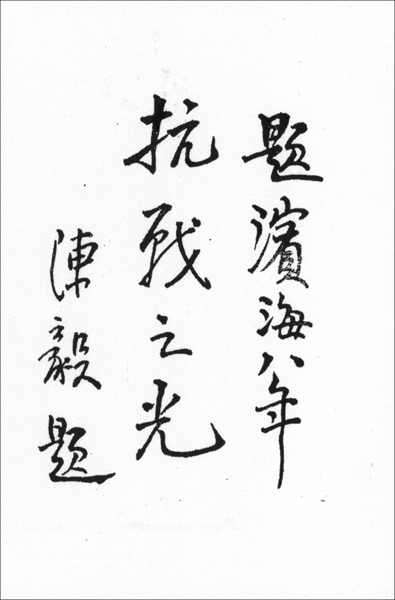 题濱海八年
抗战之光
陳毅题